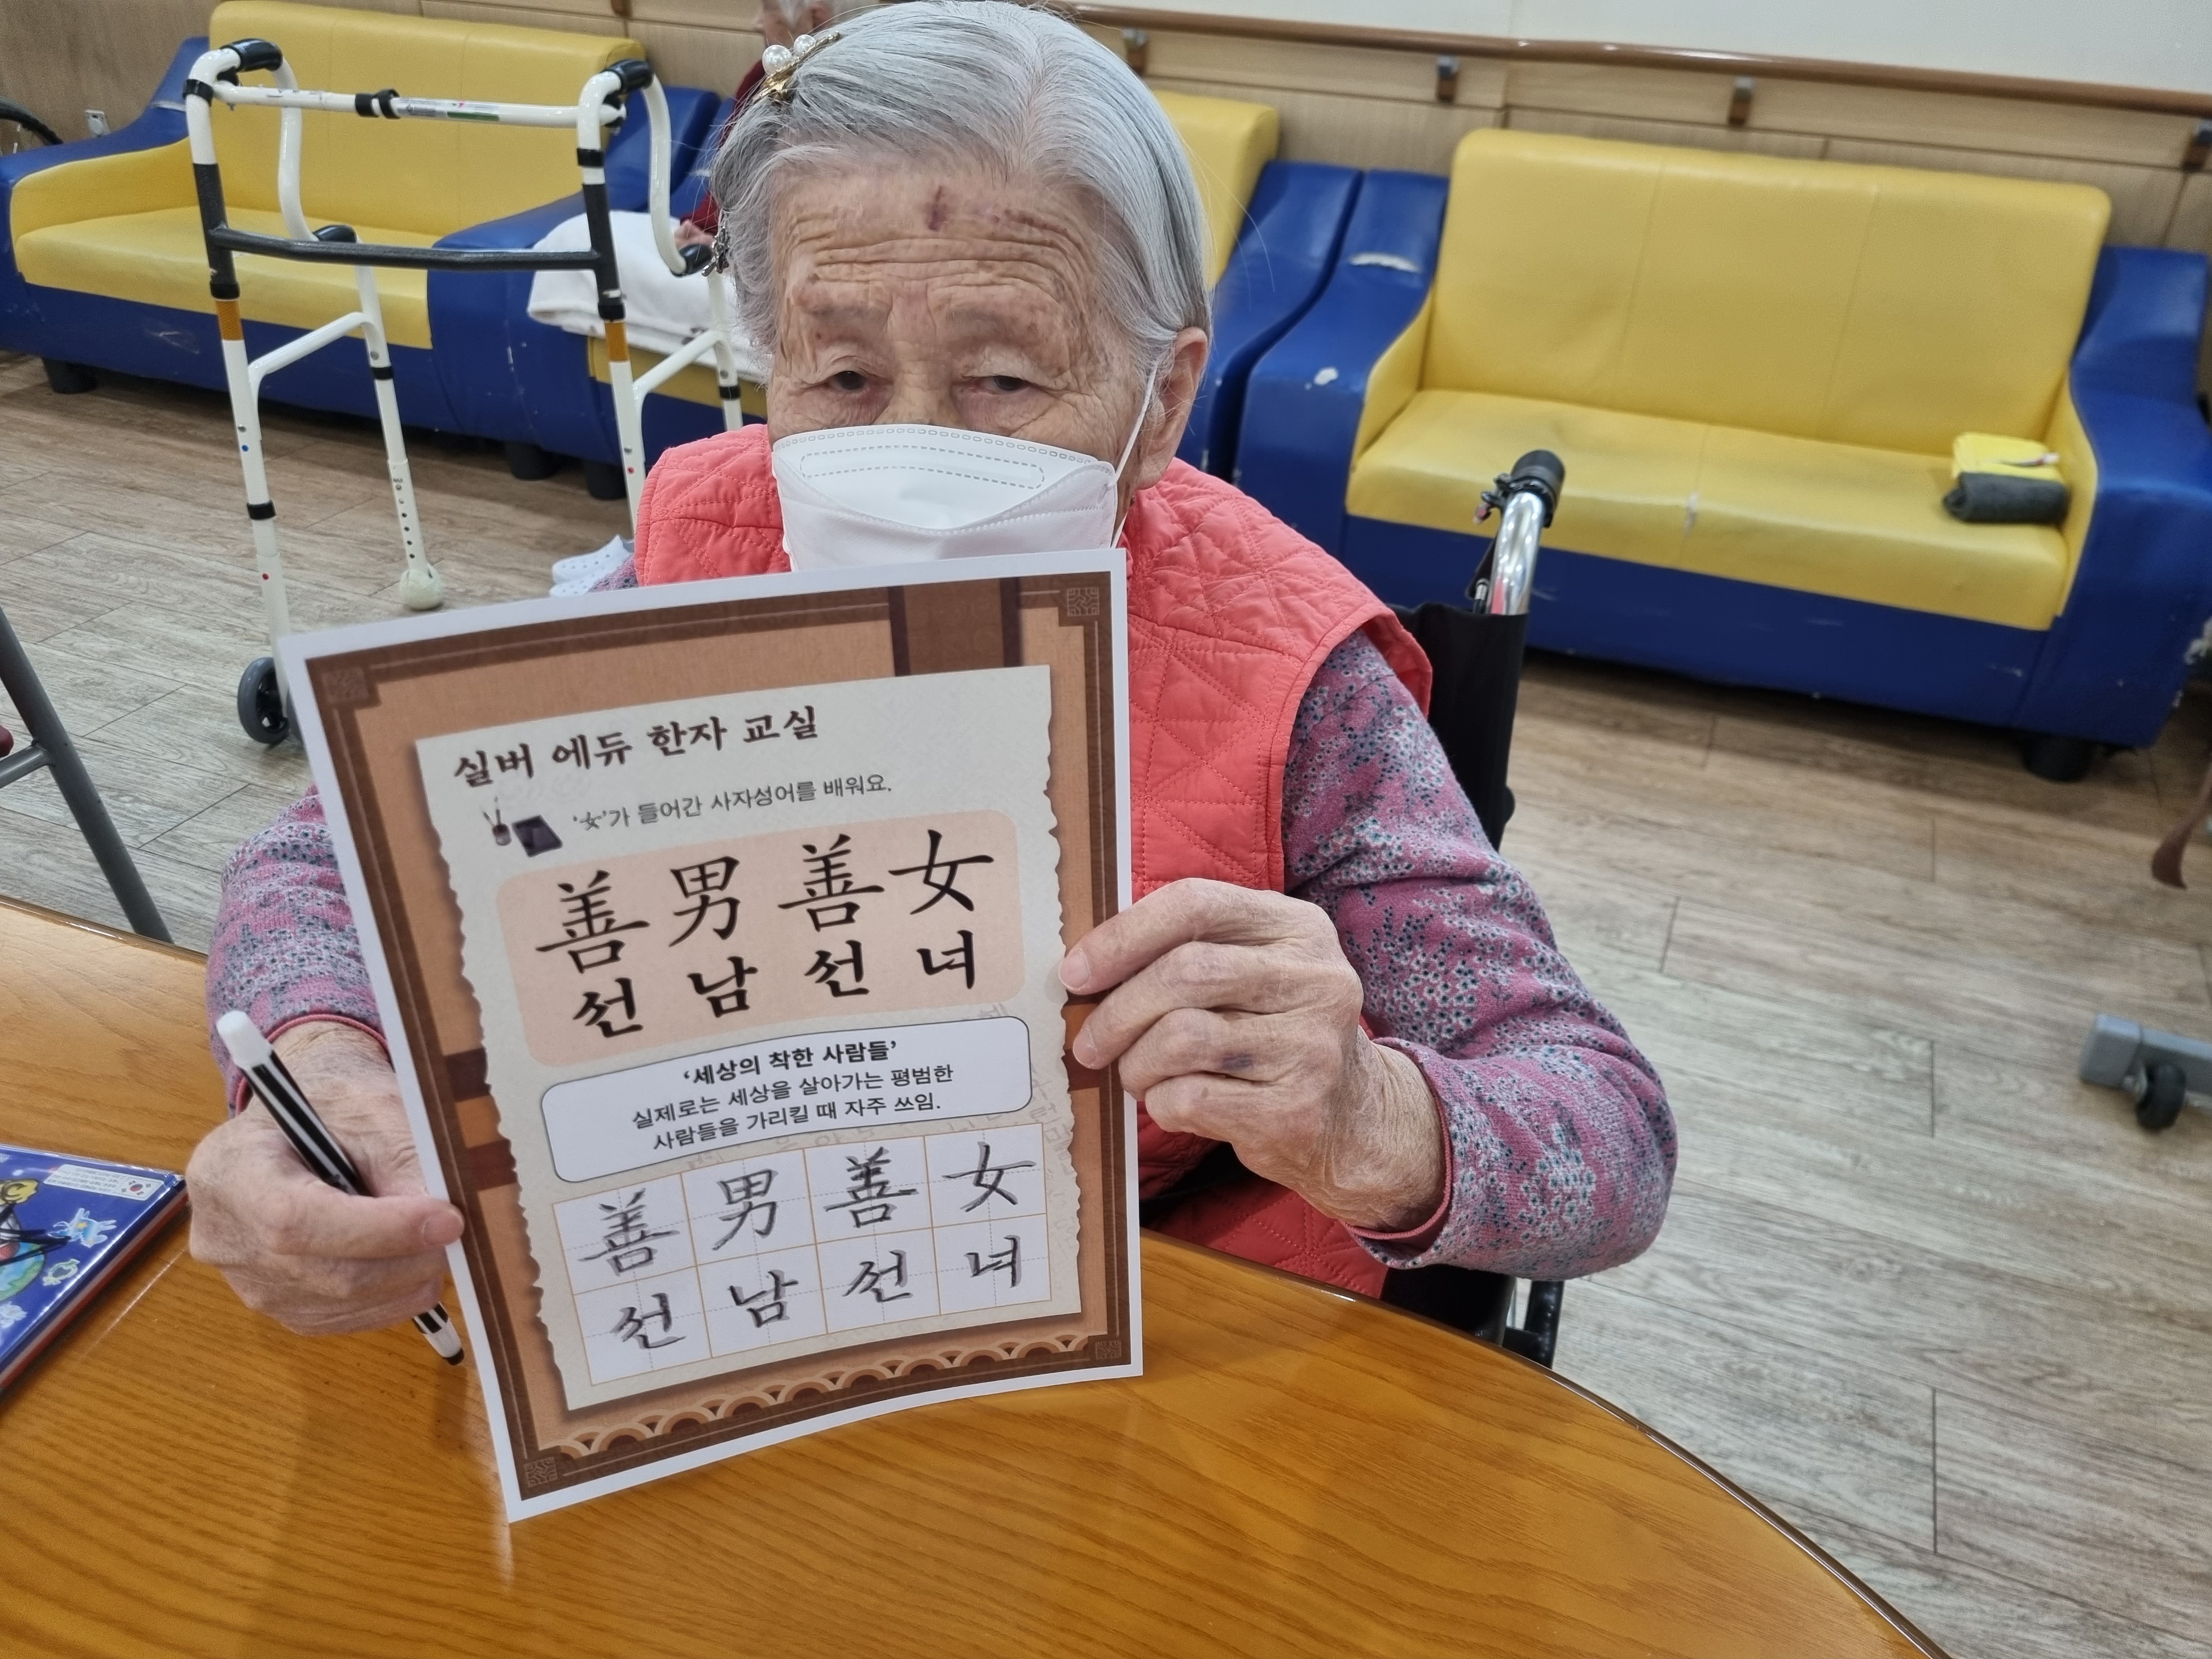 실버 에듀 한자 교실
'女'가 들어간 사자성어를 배워요.
善男善女
선남선녀
'세상의 착한 사람들'
실제로는 세상을 살아가는 평범한
사람들을 가리킬 때 자주 쓰임.
善男善女
선남선녀